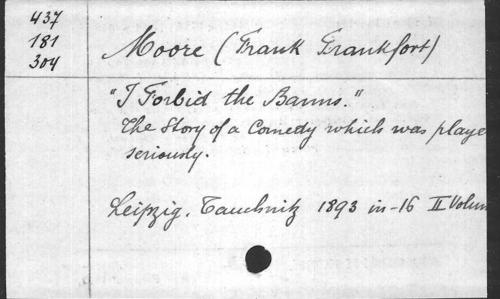 437
181
304
Moore (Frank Frankfort)
"I Forbid the Banns."
The Story of a Comedy which was playe
seriously.
Leipzig. Tauchnitz 1893 in-16 II Volum